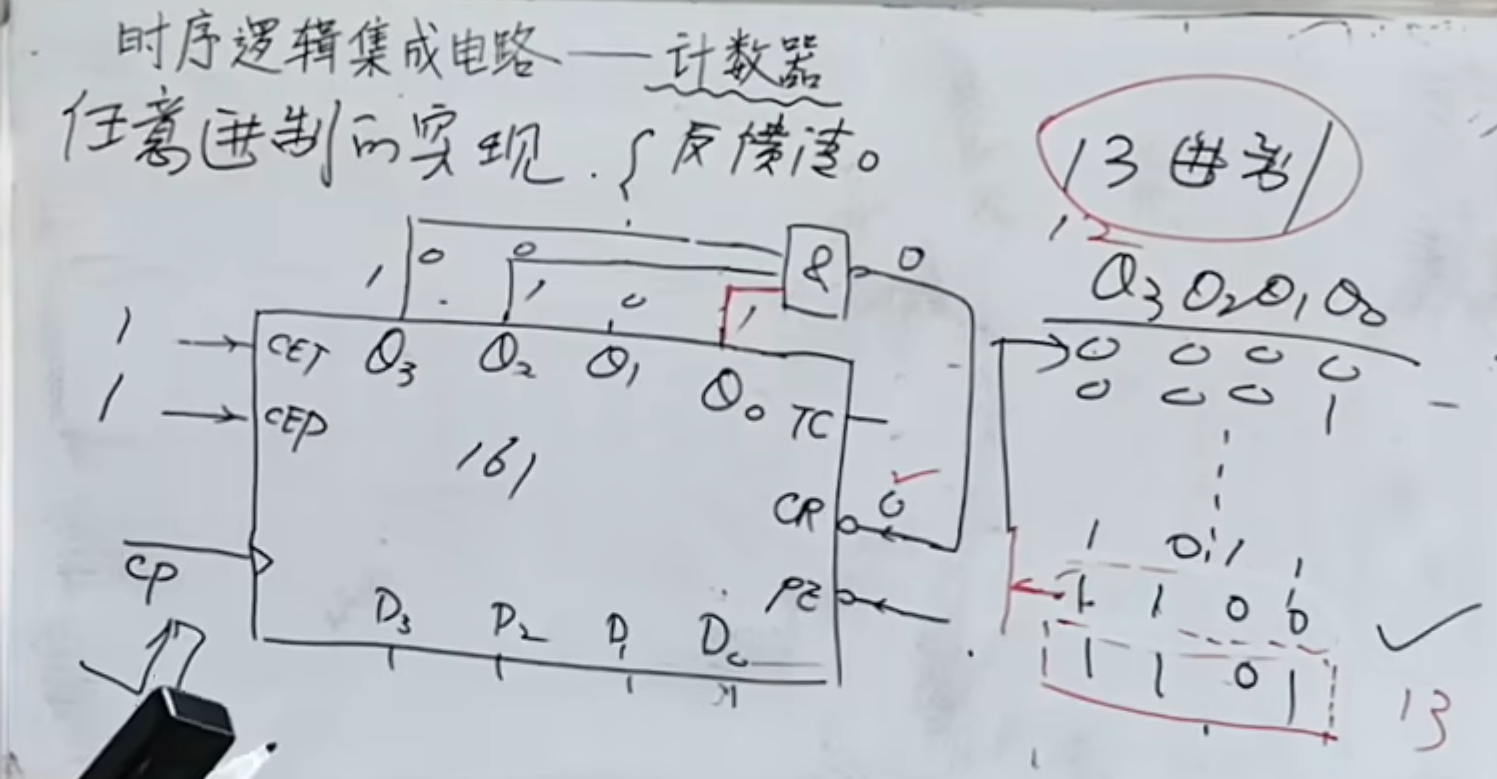 时序逻辑集成电路——计数器
任意进制的实现.{反馈清0
13进制
12
Q3 Q2 Q1 Q0
0 0 0 0
0 0 0 1
1 0 1 1
1 1 0 0
1 1 0 1
13
&
0
1 0 0 1 0 1
1 CET Q3 Q2 Q1 Q0
1 CEP
TC
161
CR 0
CP
PE
D3 D2 D1 D0